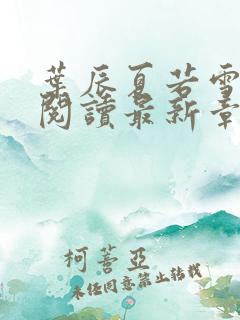 葉辰夏若雪
閱讀最新章
柯蓍亞
未经同意禁止转载